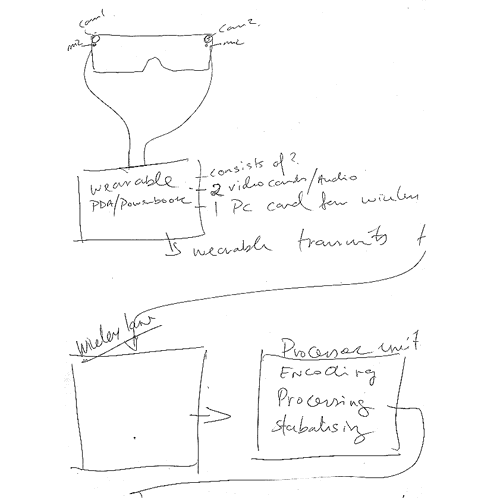 Cam1
Cam2.
mic
mic
consists of?
wearable
2 video cards/Audio
PDA/Powerbook
1 PC card for wireless
Is wearable transmits t
Processor unit
Encoding
Processing
stabalising